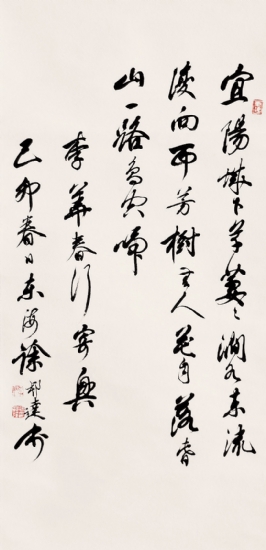 宜陽城下草萋〻澗水東流
復向西芳樹無人花自落春
山一路鳥空啼
李華春行寄興
己卯春日東海徐邦達書